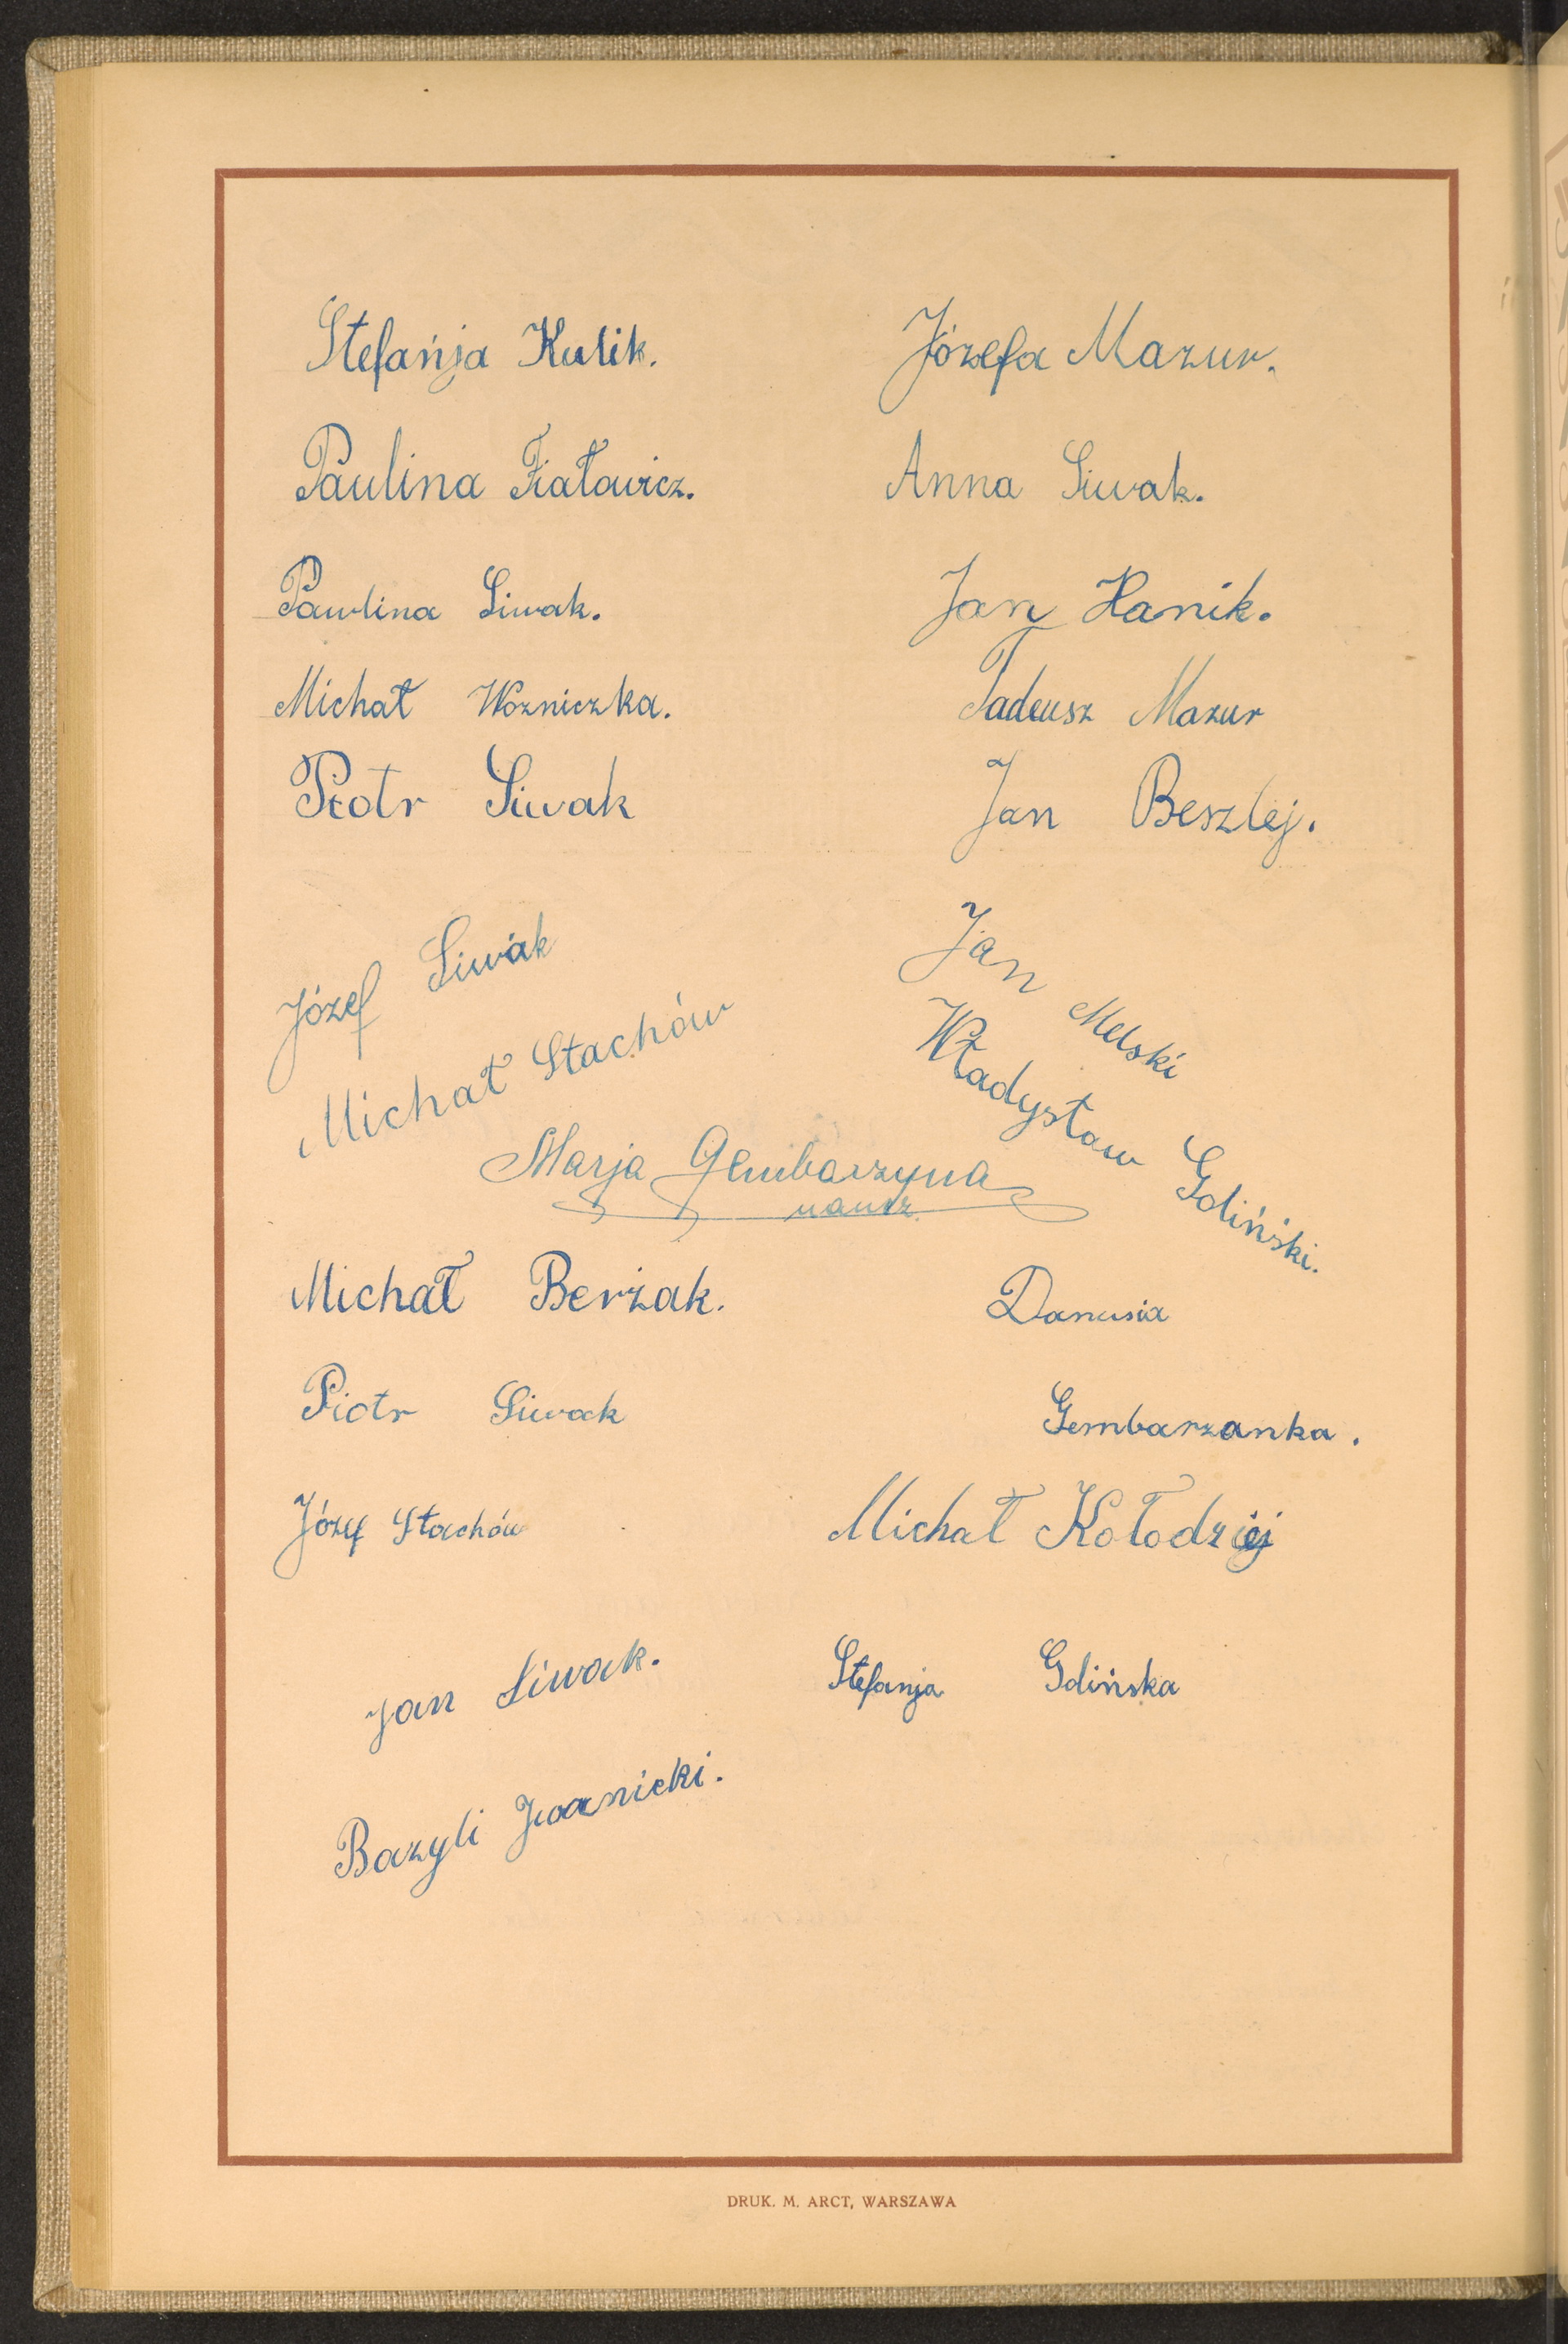 Stefańja Kulik.
Józefa Mazur.
Paulina Fiatowicz.
Anna Siwak.
Pawlina Siwak.
Jan Hanik.
Michał Wozniczka.
Tadeusz Mazur
Piotr Siwak
Jan Beszlej.
Józef Siwak
Jan Melski
Michał Stachów
Władysław Gdiński.
Marja Gembarzyna
naucz.
Michał Berżak.
Danusia
Piotr Siwak
Gembarzanka.
Józef Stachów
Michał Kołodziej
Jan Siwak.
Stefanja Gdińska
Bazyli Iwanicki.
DRUK. M. ARCT, WARSZAWA